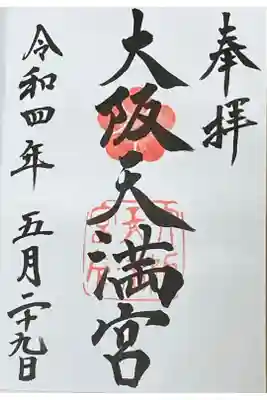 奉拝
大阪天満宮
令和四年 五月二十九日